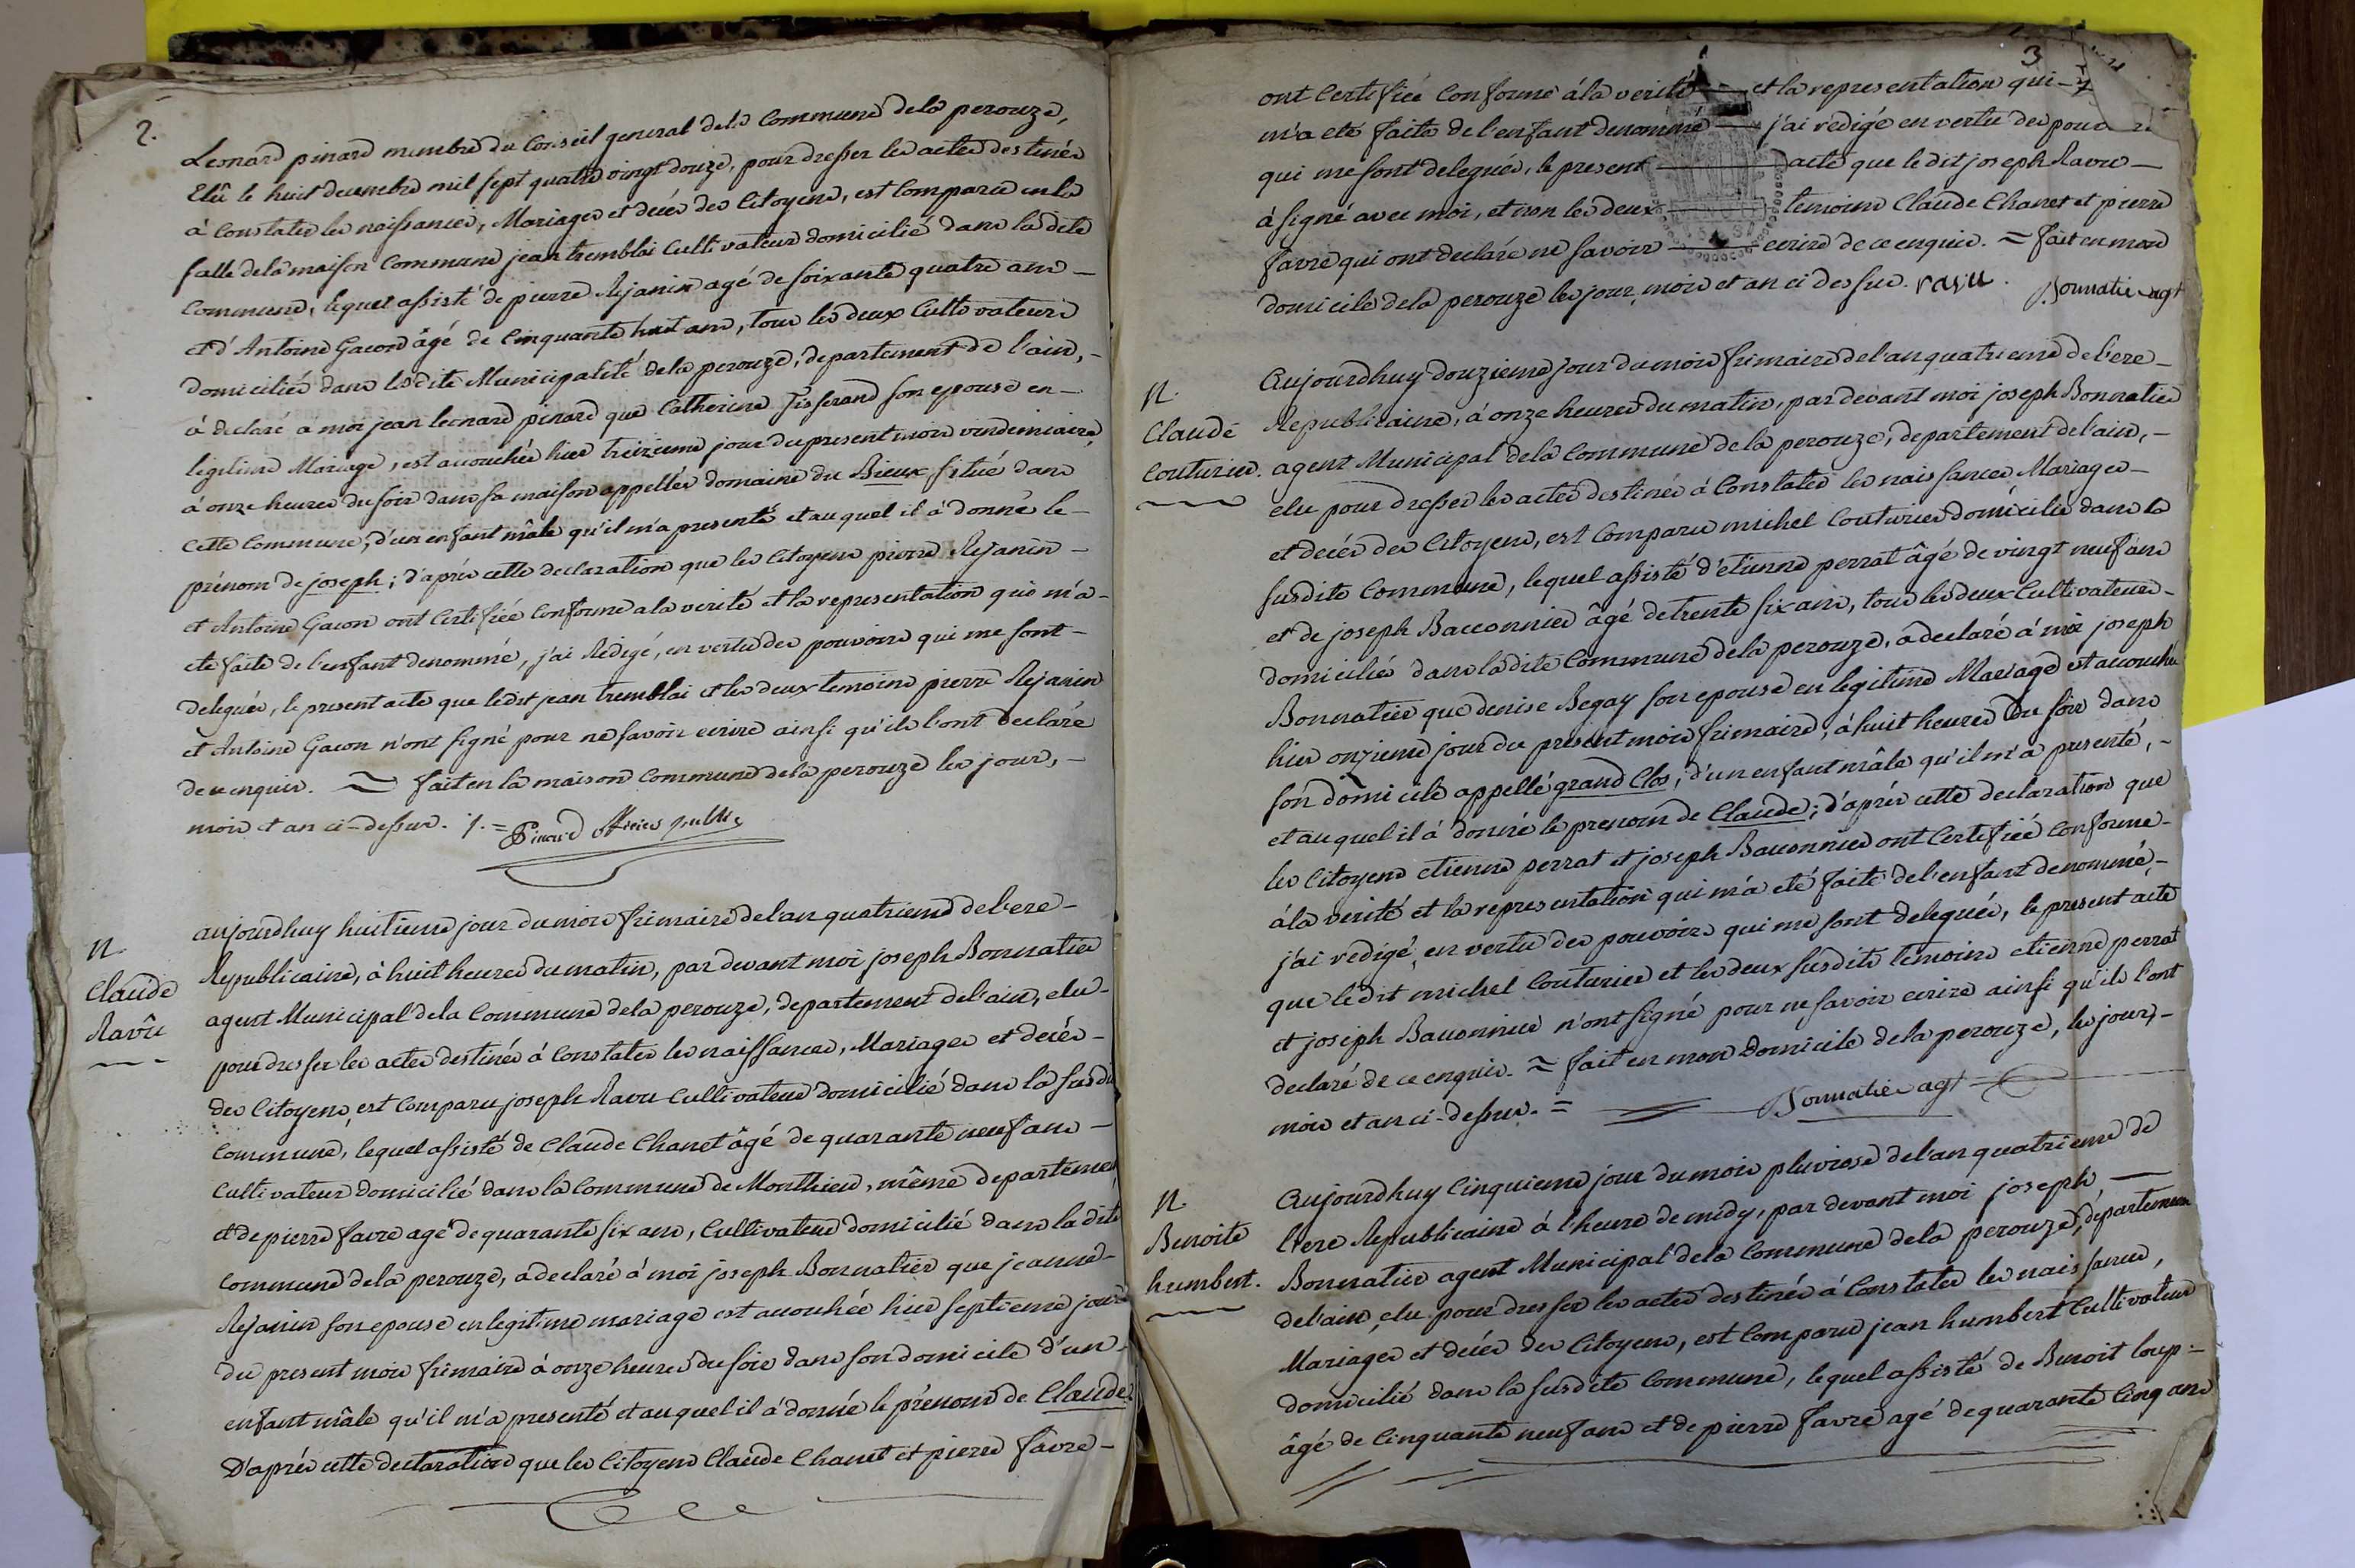 2.
Leonard pinard membre du Conseil general dela Commune dela perouze,
Elû le huit decembre mil sept quatre vingt douze, pour dresser les actes destinés
à Constater les naissances, Mariages et decés des Citoyens, est Comparu en la
salle dela maison Commune jean tremblai Cultivateur domicilié dans la dite
Commune, lequel assisté de pierre Rejanin agé de soixante quatre ans -
et d'Antoine Gacon âgé de Cinquante huit ans, tous les deux Cultivateurs
domiciliés dans ladite Municipalité dela perouze, departement de l'ain, -
à declaré à moi jean leonard pinard que Catherine Tisserand son epouse en -
legitime Mariage, est accouchée hier treizieme jour du present mois vendemiaire
à onze heures du soir dans sa maison appellée domaine du Bieux, situé dans
cette Commune, d'un enfant mâle qu'il m'a presenté et auquel il à donné le -
prénom de joseph; d'après cette declaration que les Citoyens pierre Rejanin -
et Antoine Gacon ont Certifiée Conforme a la verité et la representation qui m'a -
eté faite de l'enfant denommé, j'ai Rédigé, en vertu des pouvoirs qui me sont -
delegués, le present acte que ledit jean tremblai et les deux temoins pierre Rejanin
et Antoine Gacon n'ont signé pour ne savoir ecrire ainsi qu'ils l'ont declaré
de ce enquis. ~ fait en la maison Commune dela perouze les jour, -
mois et an ci-dessus. /. = Pinard officier public
n.
Claude
Ravû
aujourdhuy huitieme jour du mois frimaire del'an quatrieme del'ere -
Republicaine, à huit heures du matin, par devant moi joseph Bonnatier
agent Municipal dela Commune dela perouze, departement del'ain, elu -
pour dresser les actes destinés à Constater les naissances, Mariages et decés -
des Citoyens, est Comparu joseph Ravu Cultivateur domicilié dans la susdi
Commune, lequel assisté de Claude Chanet âgé de quarante neuf ans -
Cultivateur domicilié dans la Commune de Monthieu, même departemen
et de pierre favre agé de quarante six ans, Cultivateur domicilié dans la dite
Commune dela perouze, a declaré à moi joseph Bonnatier que jeanne -
Rejanin son epouse en legitime mariage est accouchée hier septieme jour
du present mois frimaire à onze heures du soir dans son domicile d'un -
enfant mâle qu'il m'a presenté et auquel il à donné le prénom de Claude.
D'après cette declaration que les Citoyens Claude Chanet et pierre favre -
3
ont Certifiée Conforme à la verité et la representation qui -
m'a eté faite de l'enfant denommé j'ai rédigé en vertu des
qui me sont delegués, le present acte que ledit joseph Ravu -
à signé avec moi, et non les deux temoins Claude Chanet et pierre
favre qui ont declaré ne savoir ecrire de ce enquis. = fait en mon
domicile dela perouze les jour, mois et an ci dessus. ravu. Bonnatier agt
n.
Claude
Couturier.
Aujourdhuy douzieme jour du mois frimaire del'an quatrieme del'ere -
Republicaine, à onze heures du matin, par devant moi joseph Bonnatier
agent Municipal dela Commune dela perouze, departement del'ain, -
elu pour dresser les actes destinés à Constater les naissances Mariages -
et decés des Citoyens, est Comparu michel Couturier domicilié dans la
susdite Commune, lequel assisté d'etienne perrat âgé de vingt neuf ans
et de joseph Bauonnier âgé de trente six ans, tous les deux Cultivateurs -
domiciliés dans ladite Commune dela perouze, a declaré à moi joseph
Bonnatier que denise Begay son epouse en legitime Mariage est accouchée
hier onzieme jour du present mois frimaire, à huit heures du soir dans
son domicile appellé grand Clos, d'un enfant mâle qu'il m'a presenté, -
et auquel il à donné le prenom de Claude; d'après cette declaration que
les Citoyens etienne perrat et joseph Bauonnier ont Certifiée Conforme -
à la verité et la representation qui m'a eté faite de l'enfant denommé, -
j'ai redigé, en vertu des pouvoirs qui me sont delegués, le present acte
que ledit michel Couturier et les deux susdits témoins etienne perrat
et joseph Bauonnier n'ont signé pour ne savoir ecrire ainsi qu'ils l'ont
declaré de ce enquis. = fait en mon Domicile dela perouze, les jour, -
mois et an ci-dessus. = Bonnatier agt
n
Benoite
humbert.
Aujourdhuy Cinquieme jour du mois pluviose del'an quatrieme de
l'ere Republicaine à l'heure de midy, par devant moi joseph -
Bonnatier agent Municipal dela Commune dela perouze, departement
del'ain, elu pour dresser les actes destinés à Constater les naissances,
Mariages et decés des Citoyens, est Comparu jean humbert Cultivateur
domicilié dans la susdite Commune, lequel assisté de Benoit loup =
âgé de Cinquante neuf ans et de pierre favre agé de quarante Cinq ans